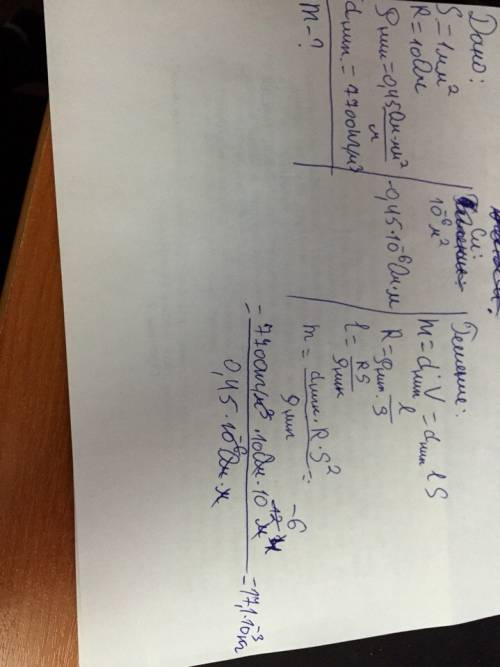 Дано:
S = 1мм²
R = 10Ом
ρник = 0,45 Ом·мм²/м
dник = 7700кг/м³
m - ?
Си:
10⁻⁶м²
0,45·10⁻⁶Ом·м
Решение:
m = dник·V = dник l S
R = ρник · l/S
l = RS/ρник
m = dник·R·S²/ρник =
= 7700кг/м³·10Ом·10⁻¹²м⁴/0,45·10⁻⁶Ом·м = 171·10⁻³кг